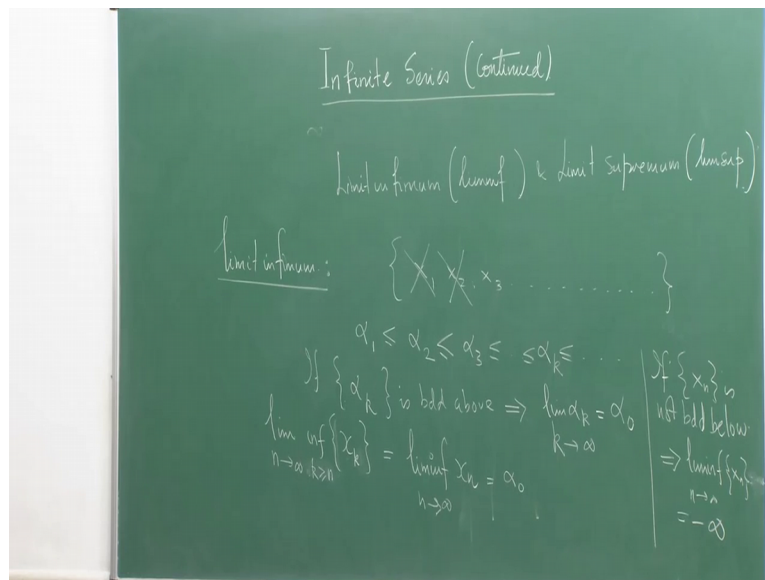 Infinite Series (Continued)
Limit infimum (liminf) & Limit Supremum (limsup)
limit infimum:
{x₁ x₂, x₃ . . . . . . . . . . . . }
α₁ ≤ α₂ ≤ α₃ ≤ ≤ αₖ ≤ . . . .
If {αₖ} is bdd above ⇒ lim αₖ = α₀
k→∞
lim inf {xₖ} = liminf xₙ = α₀
n→∞ k≥n n→∞
If {xₙ} is
not bdd below
⇒ liminf {xₙ}
= -∞